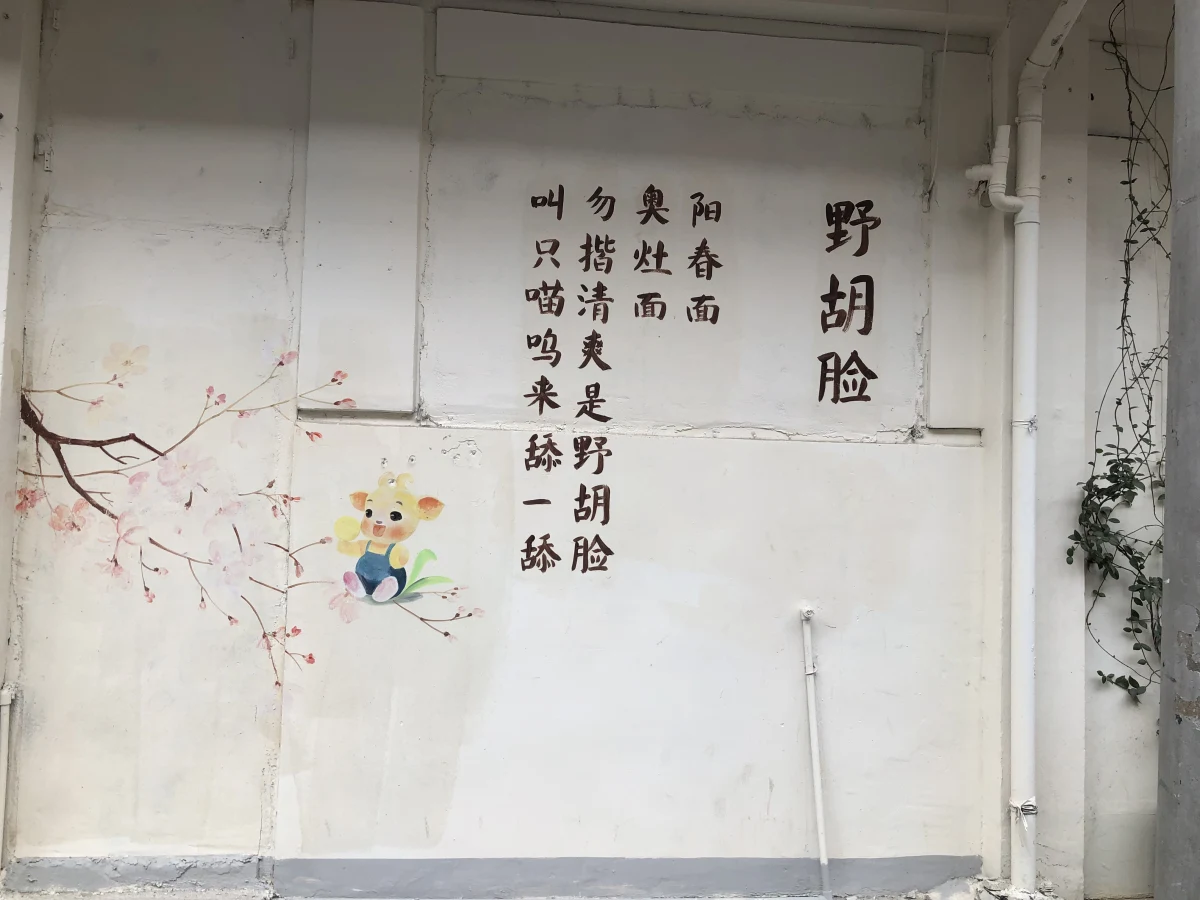 野胡脸
阳春面
奥灶面
勿揩清爽是野胡脸
叫只喵呜来舔一舔